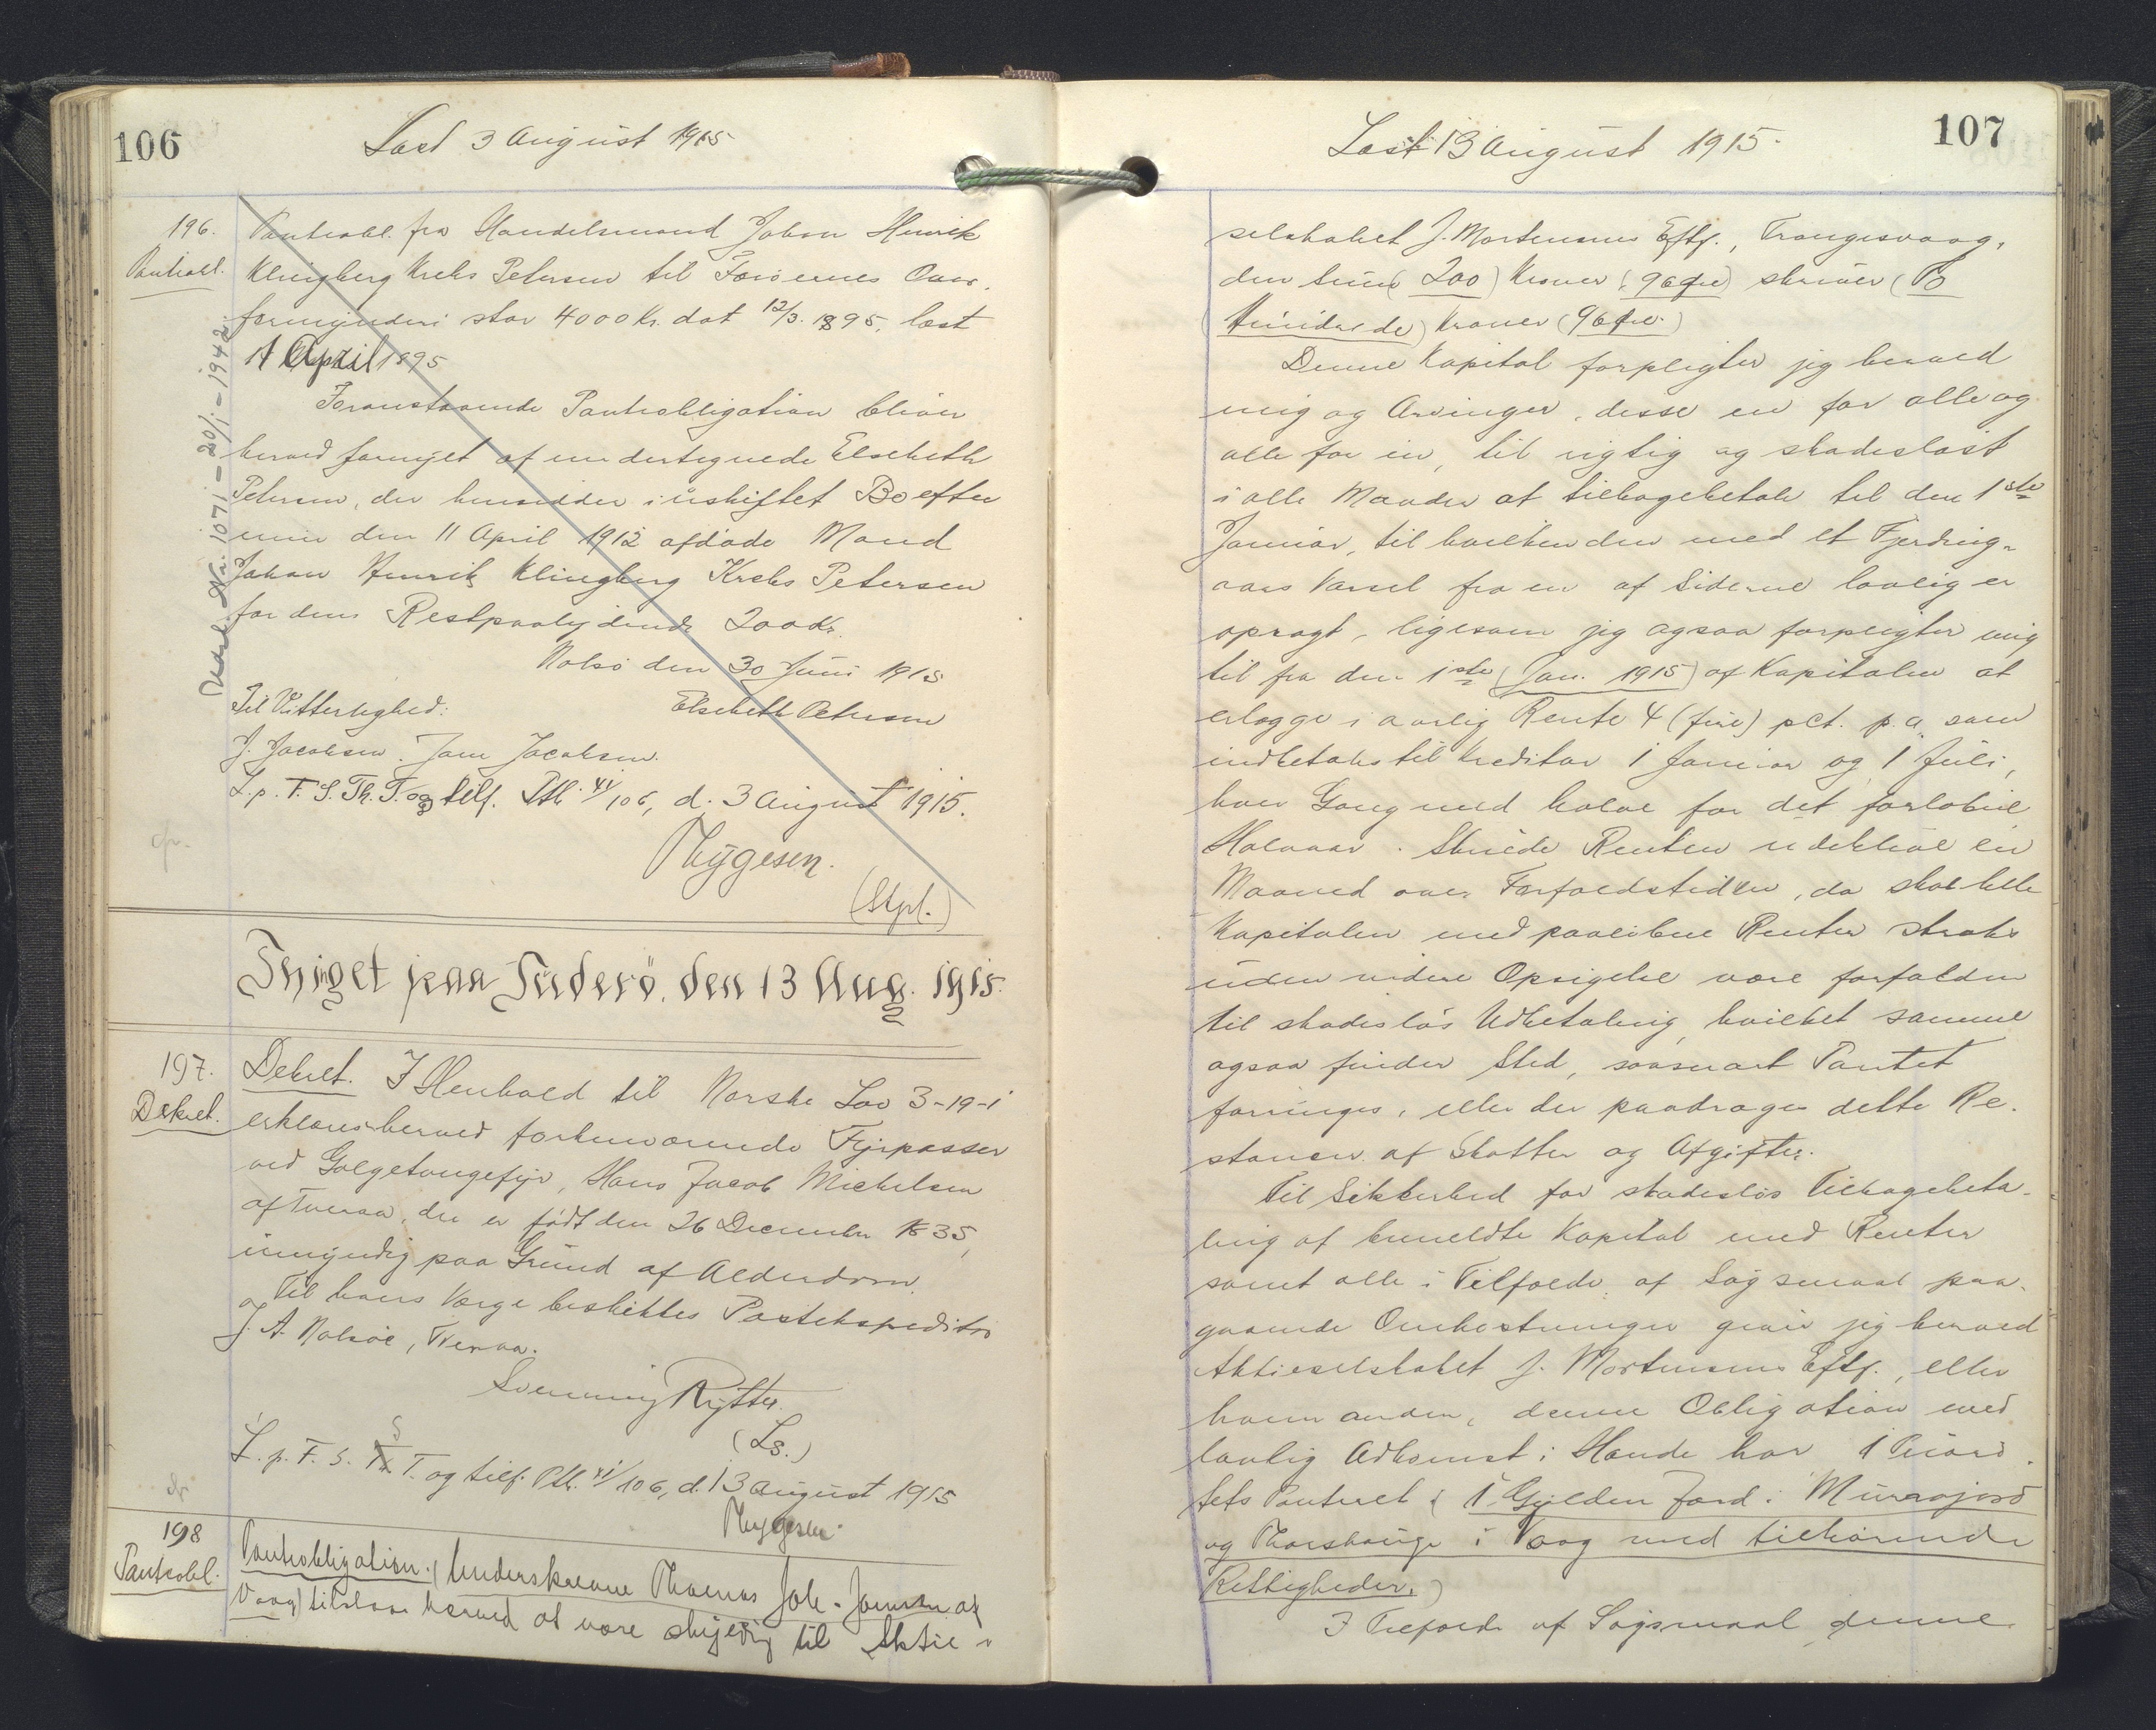 106
Læst 3 August 1915
196.
Pantobl.
Panteobl. fra Handelsmand Johan Henrik
Klingberg Krebs Petersen til Færøernes Over-
formynderi stor 4000 Kr. dat 12/3. 1895, læst
17 April 1895
Foranstaaende Panteobligation bliver
herved fornyet af undertegnede Elsebeth
Petersen, der hensidder i uskiftet Bo efter
min den 11 April 1912 afdøde Mand
Johan Henrik Klingberg Krebs Petersen
for dens Restpaalydende 200 Kr.
Nolsö den 30 Juni 1915
Til Vitterlighed: Elsebeth Petersen
J. Jacobsen. Jane Jacobsen.
L. p. F. S. Th. T. og tilf. Ptb. 41/106, d. 3 August 1915.
Mygesen.
(Stpl.)
Udsl. Nr. 107 i - 20/1 - 1942.
Thinget paa Suderö, den 13 Aug. 1915.
197.
Dekret.
Dekret. I Henhold til Norske Lov 3-19-1
erklæres herved forhenværende Fyrpasser
ved Galgetangefyr, Hans Jacob Michelsen
af Tveraa, der er født den 26 December 1835,
umyndig paa Grund af Alderdom.
Til hans Værge beskikkes Postekspeditör
J. A. Nolsöe, Tveraa.
Svenning Rytter.
(Ls.)
L. p. F. S. S T. og tilf. Ptb. 41/106, d. 13 August 1915
Mygesen.
198
Panteobl.
Panteobligation. (Underskrevne Thomas Joh. Joensen af
Vaag) tilstaar herved at være skyldig til Aktie-
107
Læst 13 August 1915.
selskabet J. Mortensens Eftf., Trangisvaag,
den Sum (200) Kroner (96 Øre) skriver (To
Hundrede) Kroner (96 Øre.)
Denne Kapital forpligter jeg herved
mig og Arvinger, disse en for alle og
alle for en, til rigtig og skadesløst
i alle Maader at tilbagebetale til den 1ste
Januar, til hvilken den med et Fjerding-
aars Varsel fra en af Siderne lovlig er
opsagt, ligesom jeg ogsaa forpligter mig
til fra den 1ste (Jan. 1915) af Kapitalen at
erlægge i aarlig Rente 4 (fire) pct. p. a. som
indbetales til Kreditor 1 Januar og 1 Juli,
hver Gang med halve for det forløbne
Halvaar. Skulde Renten udeblive en
Maaned over Forfaldstiden, da skal hele
Kapitalen med paaløbne Renter straks
uden videre Opsigelse være forfalden
til skadesløs Udbetaling, hvilket samme
ogsaa finder Sted, saasnart Pantet
forringes, eller der paadrages dette Re-
stancer af Skatter og Afgifter.
Til Sikkerhed for skadesløs Tilbagebeta-
ling af bemeldte Kapital med Renter
samt alle i Tilfælde af Søgsmaal paa-
gaaende Omkostninger giver jeg herved
Aktieselskabet J. Mortensens Eftf., eller
hvem anden, denne Obligation med
lovlig Adkomst i Hænde har 1 Priori-
tets Panteret i (1 Gylden Jord i Murrojord
og Thorshauge i Vaag med tilhørende
Rettigheder.)
I Tilfælde af Søgsmaal denne